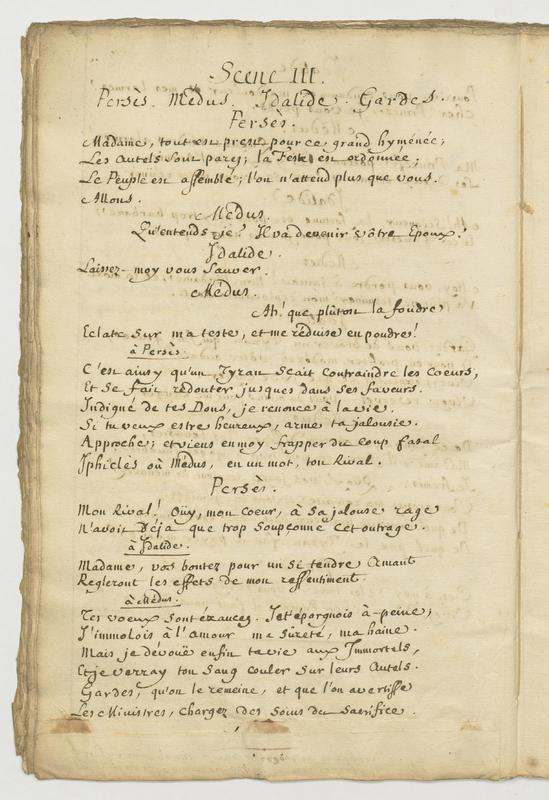 Scene III.
Persès. Médus. Idalide. Gardes.
Persès.
Madame, tout est prest pour ce grand hyménée;
Les Autels sont parez; la Feste est ordonnée;
Le Peuple est assemblé; l'on n'attend plus que vous.
Allons.
Médus.
Qu'entends-je? Il va devenir vôtre Epoux!
Idalide.
Laissez-moy vous sauver.
Médus.
Ah! que plûtost la foudre
Eclate sur ma teste, et me réduise en poudre!
à Persès.
C'est ainsy qu'un Tyran sçait contraindre les coeurs,
Et se fait redouter jusques dans ses faveurs.
Indigné de tes Dons, je renonce à la vie.
Si tu veux estre heureux, arme ta jalousie.
Approche; et viens en moy frapper du coup fatal
Iphiclès où Médus, en un mot, ton Rival.
Persès.
Mon Rival! Oüy, mon coeur, à sa jalouse rage
N'avoit déja que trop soupçonné cet outrage.
à Idalide.
Madame, vos bontez pour un si tendre Amant
Regleront les effets de mon ressentiment.
à Médus.
Tes voeux sont éxaucez. Je t'épargnois à-peine;
J'immolois à l'Amour ma sûreté, ma haine.
Mais je dévoüe enfin ta vie aux Immortels,
Et je verray ton sang couler sur leurs Autels.
Gardes, qu'on le remeine, et que l'on avertisse
Les Ministres, chargez des soins du Sacrifice.